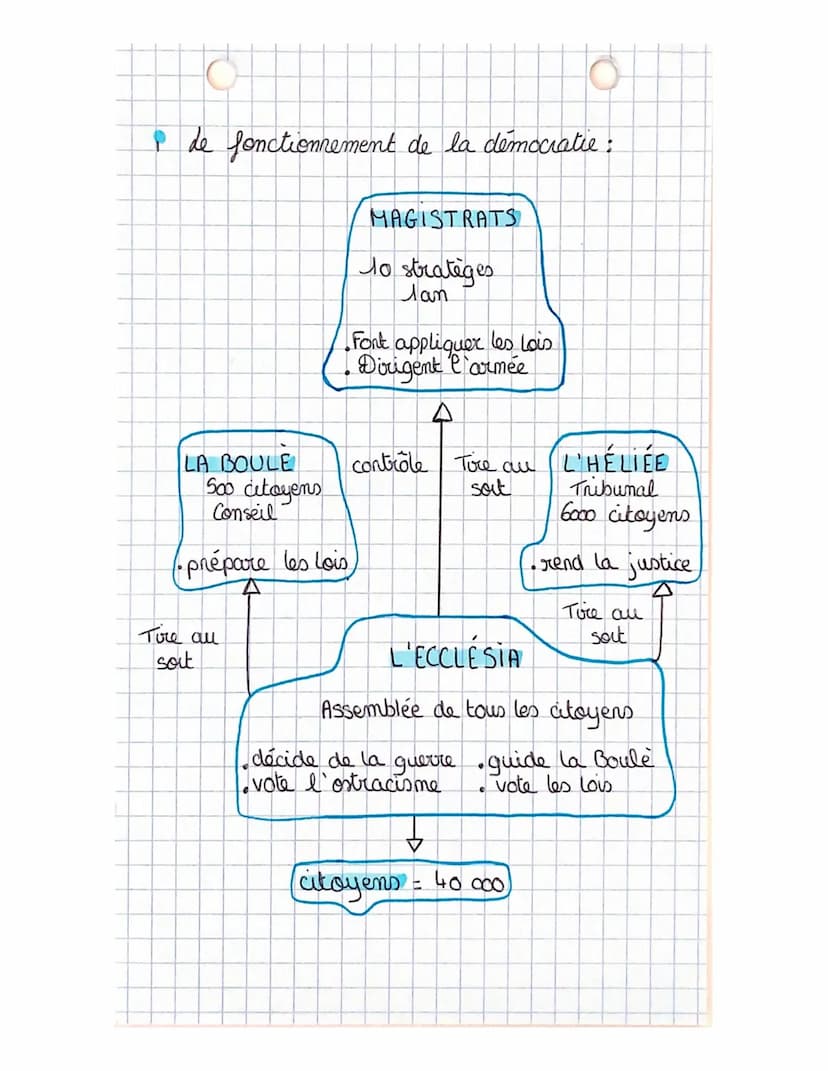 Le fonctionnement de la démocratie :
MAGISTRATS
10 stratèges
1an
. Font appliquer les lois
. Dirigent l'armée
LA BOULÈ
500 citoyens
Conseil
. prépare les lois
contrôle
Tire au
sort
L'HÉLIÉE
Tribunal
6000 citoyens
. rend la justice
Tire au
sort
Tire au
sort
L'ECCLÉSIA
Assemblée de tous les citoyens
. décide de la guerre . guide la Boulè
. vote l'ostracisme . vote les lois
citoyens = 40 000